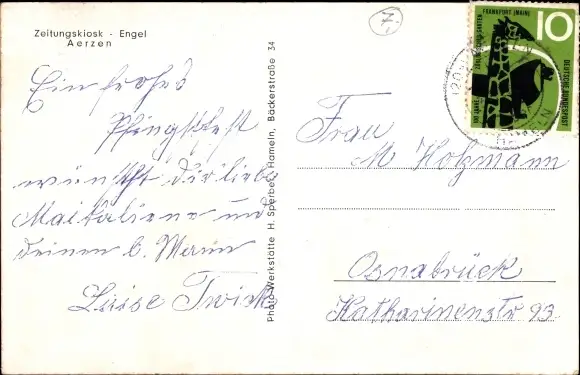 Zeitungskiosk - Engel
Aerzen
Ein frohes
Pfingstfest
wünscht dir liebe
und
deinen l. Mann
Luise
Photo-Werkstätte H. Sperber, Hameln, Bäckerstraße 34
7.
FRANKFURT (MAIN)
10
DEUTSCHE BUNDESPOST
100 JAHRE ZOOLOGISCHER GARTEN
Frau
M Holzmann
Osnabrück
Katharinenstr 93